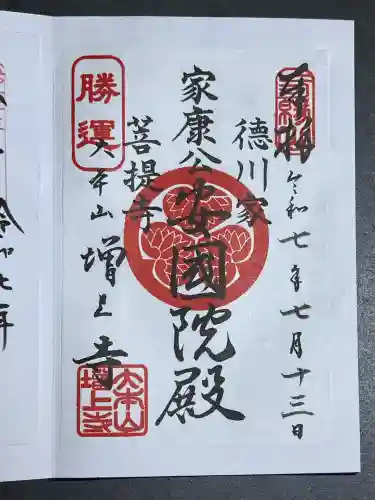 奉拝
令和七年七月十三日
徳川家
家康公安國院殿
菩提寺
勝運
大本山増上寺
大本山
増上寺